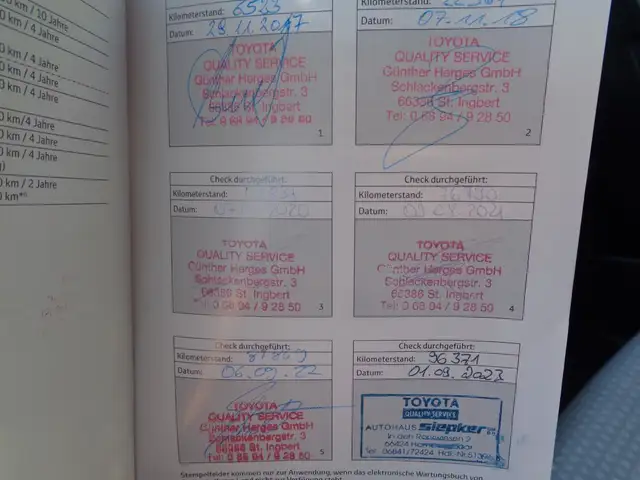 km / 10 Jahre
0 km / 4 Jahre
0 km / 4 Jahre
0 km / 4 Jahre
0 km / 4 Jahre
km/4 Jahre
0 km / 4 Jahre
0 km / 4 Jahre
0 km / 2 Jahre
Kilometerstand: 6523
Datum: 28.11.2017
TOYOTA
QUALITY SERVICE
Günther Herges GmbH
Schlackenbergstr. 3
66386 St. Ingbert
Tel. 0 68 94 / 9 28 50
1
Kilometerstand:
Datum: 07.11.18
TOYOTA
QUALITY SERVICE
Günther Herges GmbH
Schlackenbergstr. 3
66386 St. Ingbert
Tel.: 0 68 94 / 9 28 50
2
Check durchgeführt:
Kilometerstand:
Datum: 2020
TOYOTA
QUALITY SERVICE
Günther Herges GmbH
Schlackenbergstr. 3
66386 St. Ingbert
Tel.: 0 68 94 / 9 28 50
3
Check durchgeführt:
Kilometerstand:
Datum: 2021
TOYOTA
QUALITY SERVICE
Günther Herges GmbH
Schlackenbergstr. 3
66386 St. Ingbert
Tel.: 0 68 94 / 9 28 50
4
Check durchgeführt:
Kilometerstand:
Datum: 06.09.22
TOYOTA
QUALITY SERVICE
Günther Herges GmbH
Schlackenbergstr. 3
66386 St. Ingbert
Tel.: 0 68 94 / 9 28 50
5
Check durchgeführt:
Kilometerstand: 96 371
Datum: 01.09.2023
TOYOTA
QUALITY-SERVICE
AUTOHAUS Siepker
In den Rappwiesen 2
66424 Homburg/Saar
Tel. 06841/72424
Stempelfelder kommen nur zur Anwendung, wenn das elektronische Wartungsbuch von